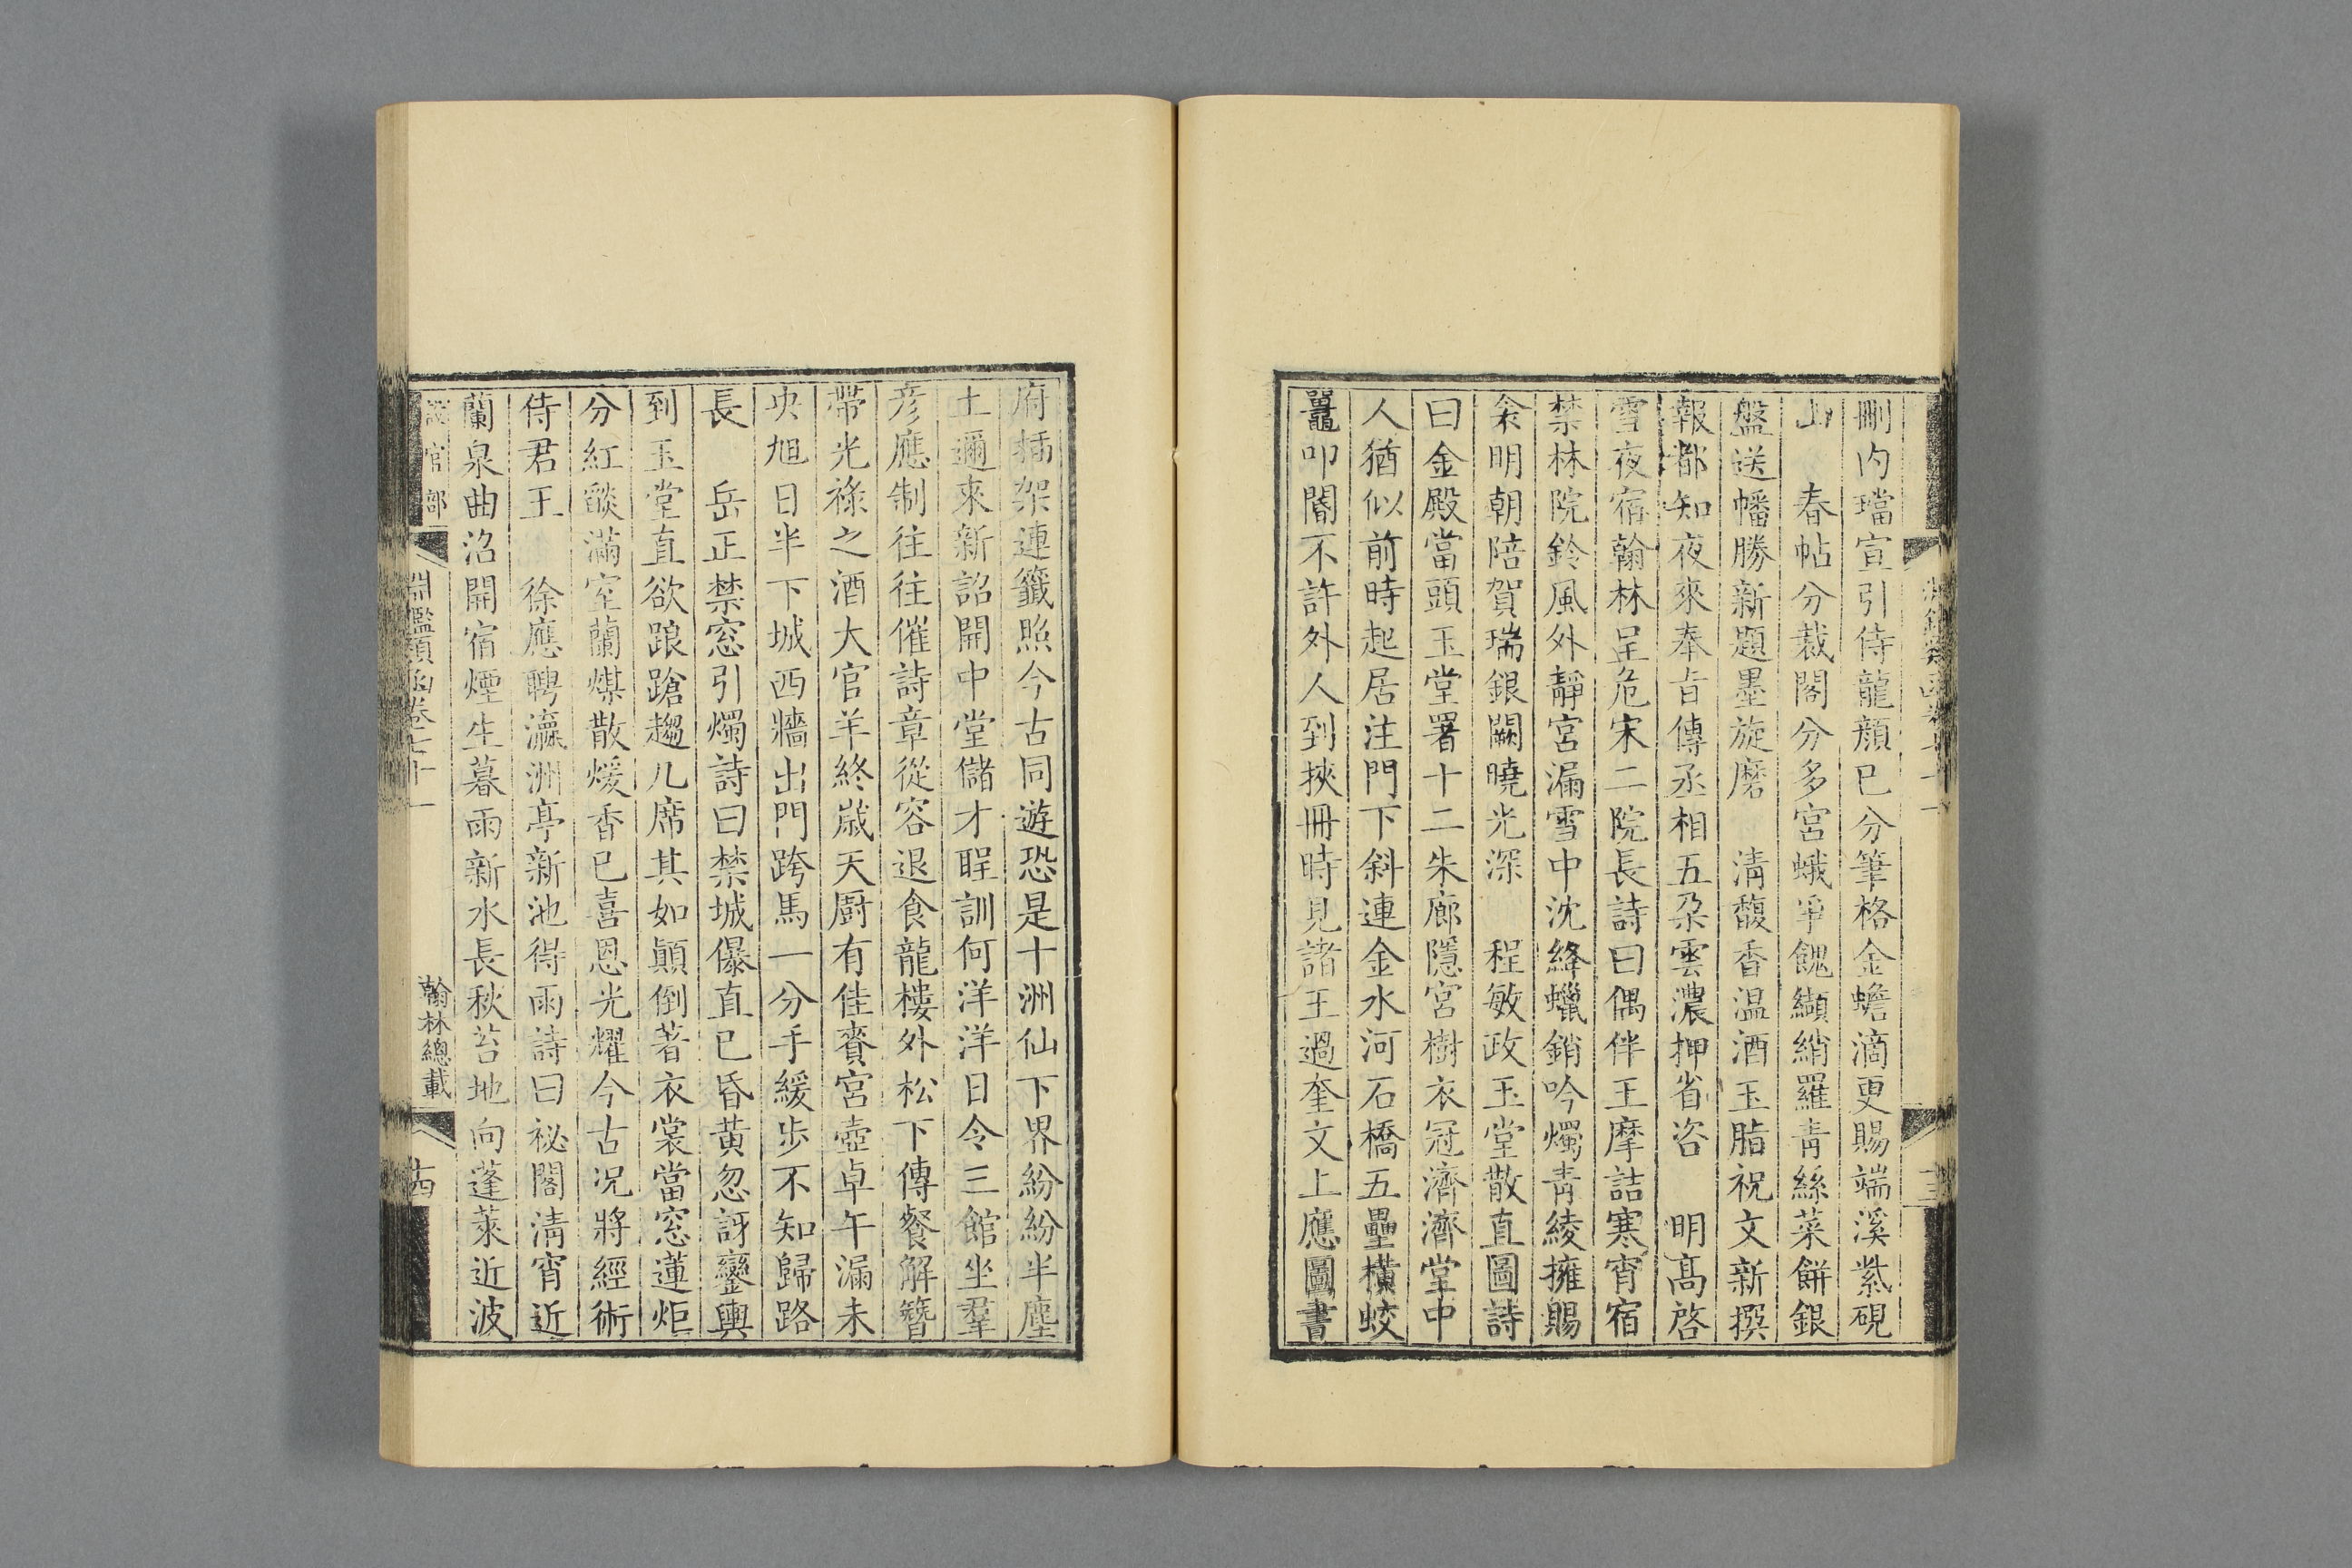 刪內璫宣引侍龍顏已分筆格金蟾滴更賜端溪紫硯
山　春帖分裁閣分多宮蛾爭餽纈綃羅青絲菜餅銀
盤送幡勝新題墨旋磨　清馥香温酒玉脂祝文新撰
報都知夜來奉旨傳丞相五朶雲濃押省咨　明髙啓
雪夜宿翰林呈危宋二院長詩曰偶伴王摩詰寒宵宿
禁林院鈴風外靜宮漏雪中沈絳蠟銷吟燭青綾擁賜
衾明朝陪賀瑞銀闕曉光深　程敏政玉堂散直圖詩
曰金殿當頭玉堂署十二朱廊隱宮樹衣冠濟濟堂中
人猶似前時起居注門下斜連金水河石橋五壘橫蛟
鼉叩閽不許外人到挾冊時見諸王過奎文上應圖書
府插架連籤照今古同遊恐是十洲仙下界紛紛半塵
土邇來新詔開中堂儲才程訓何洋洋日令三館坐羣
彦應制往往催詩章從容退食龍樓外松下傳餐解簪
帶光祿之酒大官羊終歲天厨有佳賚宮壺卓午漏未
央旭日半下城西牆出門跨馬一分手緩歩不知歸路
長　岳正禁窓引燭詩曰禁城儤直已昏黃忽訝鑾輿
到玉堂直欲踉蹌趨几席其如顚倒著衣裳當窓蓮炬
分紅燄滿室蘭煤散煖香已喜恩光耀今古况將經術
侍君王　徐應聘瀛洲亭新池得雨詩曰祕閣清宵近
蘭泉曲沼開宿煙生暮雨新水長秋苔地向蓬萊近波
設官部
淵鑑類函卷七十一
翰林總載
十四